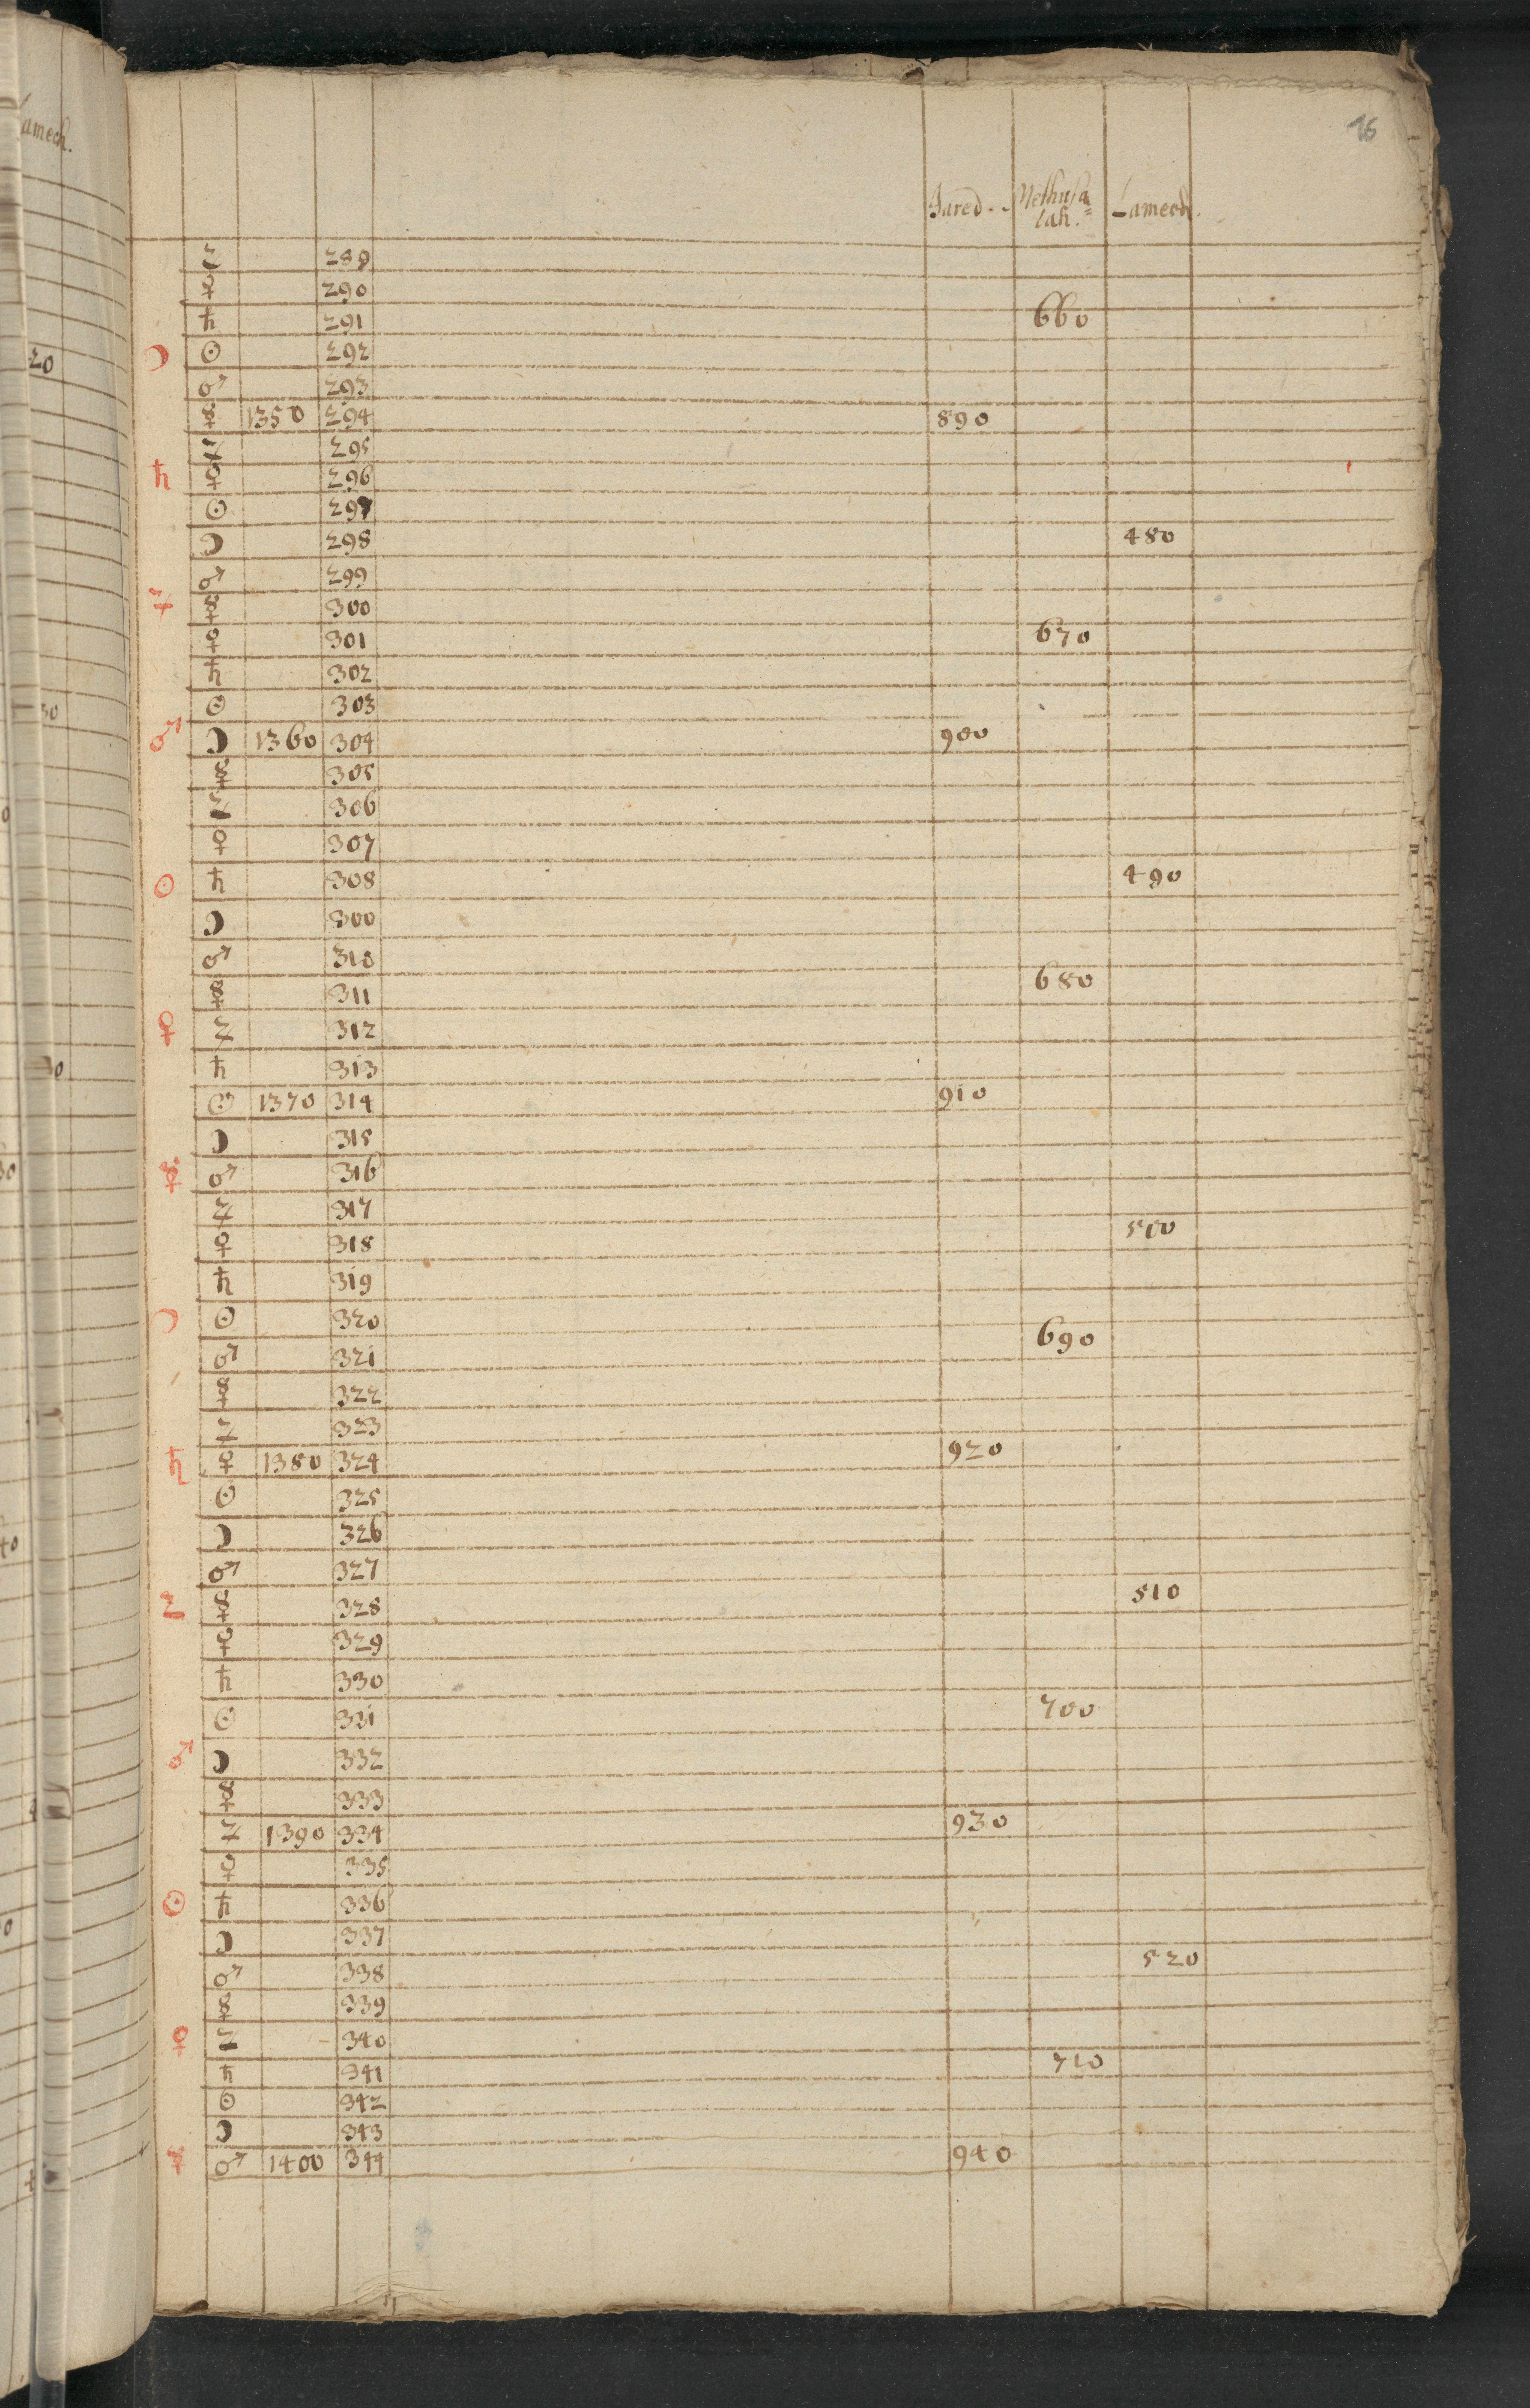 16
Jared. Methusa=
lah. Lamech.
♃ 289
♀ 290
♄ 291 660
☽ ☉ 292
♂ 293
☿ 1350 294 890
♃ 295
♄ ♀ 296
☉ 297
☽ 298 480
♂ 299
♃ ☿ 300
♀ 301 670
♄ 302
☉ 303
♂ ☽ 1360 304 900
☿ 305
♃ 306
♀ 307
☉ ♄ 308 490
☽ 300
♂ 310
☿ 311 680
♀ ♃ 312
♄ 313
☉ 1370 314 910
☽ 315
☿ ♂ 316
♃ 317
♀ 318 500
♄ 319
☽ ☉ 320
♂ 321 690
☿ 322
♃ 323
♄ ♀ 1380 324 920
☉ 325
☽ 326
♂ 327
♃ ☿ 328 510
♀ 329
♄ 330
☉ 331 700
♂ ☽ 332
☿ 333
♃ 1390 334 930
♀ 335
☉ ♄ 336
☽ 337
♂ 338 520
☿ 339
♀ ♃ 340
♄ 341 710
☉ 342
☽ 343
☿ ♂ 1400 344 940